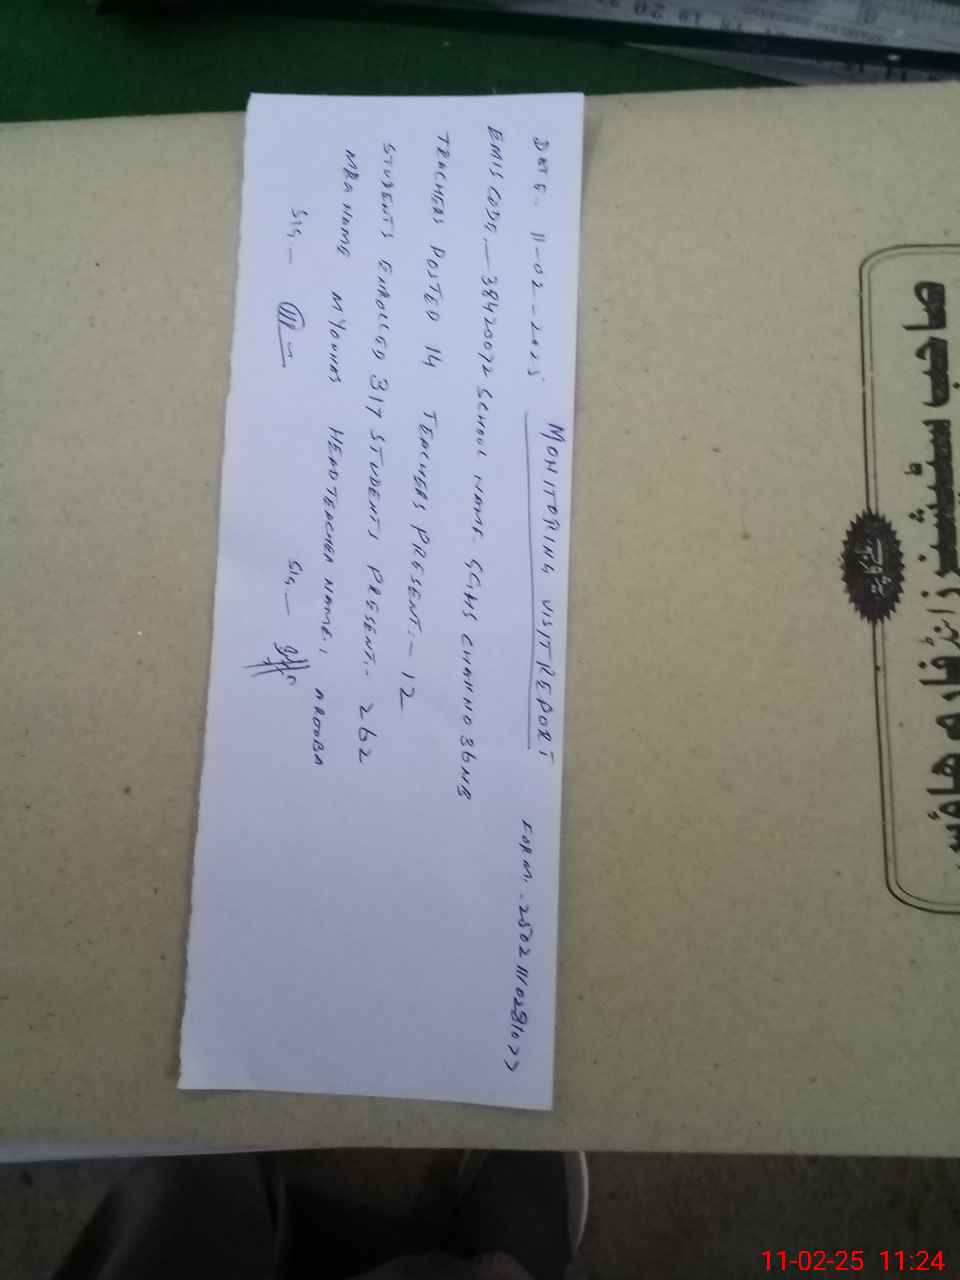 MONITORING VISIT REPORT
DATE. 11-02-2025
FORM.-25021110281077
EMIS CODE.- 38420072 SCHOOL NAME. GGHS CHAK NO 36NB
TEACHERS POSTED 14 TEACHERS PRESENT.- 12
STUDENTS ENROLLED 317 STUDENTS PRESENT.- 262
MEA NAME M YOUNAS HEADTEACHER NAME., AROOBA
SIG.- SIG.-
صاحب سٹیشنرز اینڈ فارم ہاؤس
11-02-25 11:24